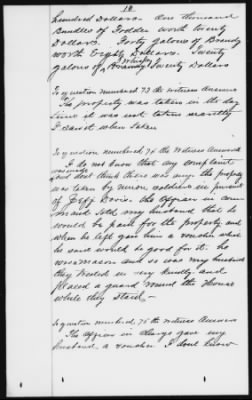 18
hundred Dollars. One thousand
Bundles of Fodder worth twenty
Dollars. Forty galons of Brandy
worth Eighty Dollars. Twenty
galons of Whisky Brandy Twenty Dollars
To question numbered 73 the witness Answers
The property was taken in the day
time it was not taken secretly
I dont when taken
To question numbered 74 the witness Answers
I do not know that any complaint
was made and dont think there was any the property
was taken by union soldiers in pursuit
of Jeff Davis. the officer in com
mand told my husband that he
would be paid for the property and
when he left gave him a voucher which
he said would be good for it. he
was mason and so was my husband
they treated us very kindly and
placed a guard round the House
while they staid
To question numbered 75 the witness Answers
The officer in charge gave my
husband a voucher I dont know